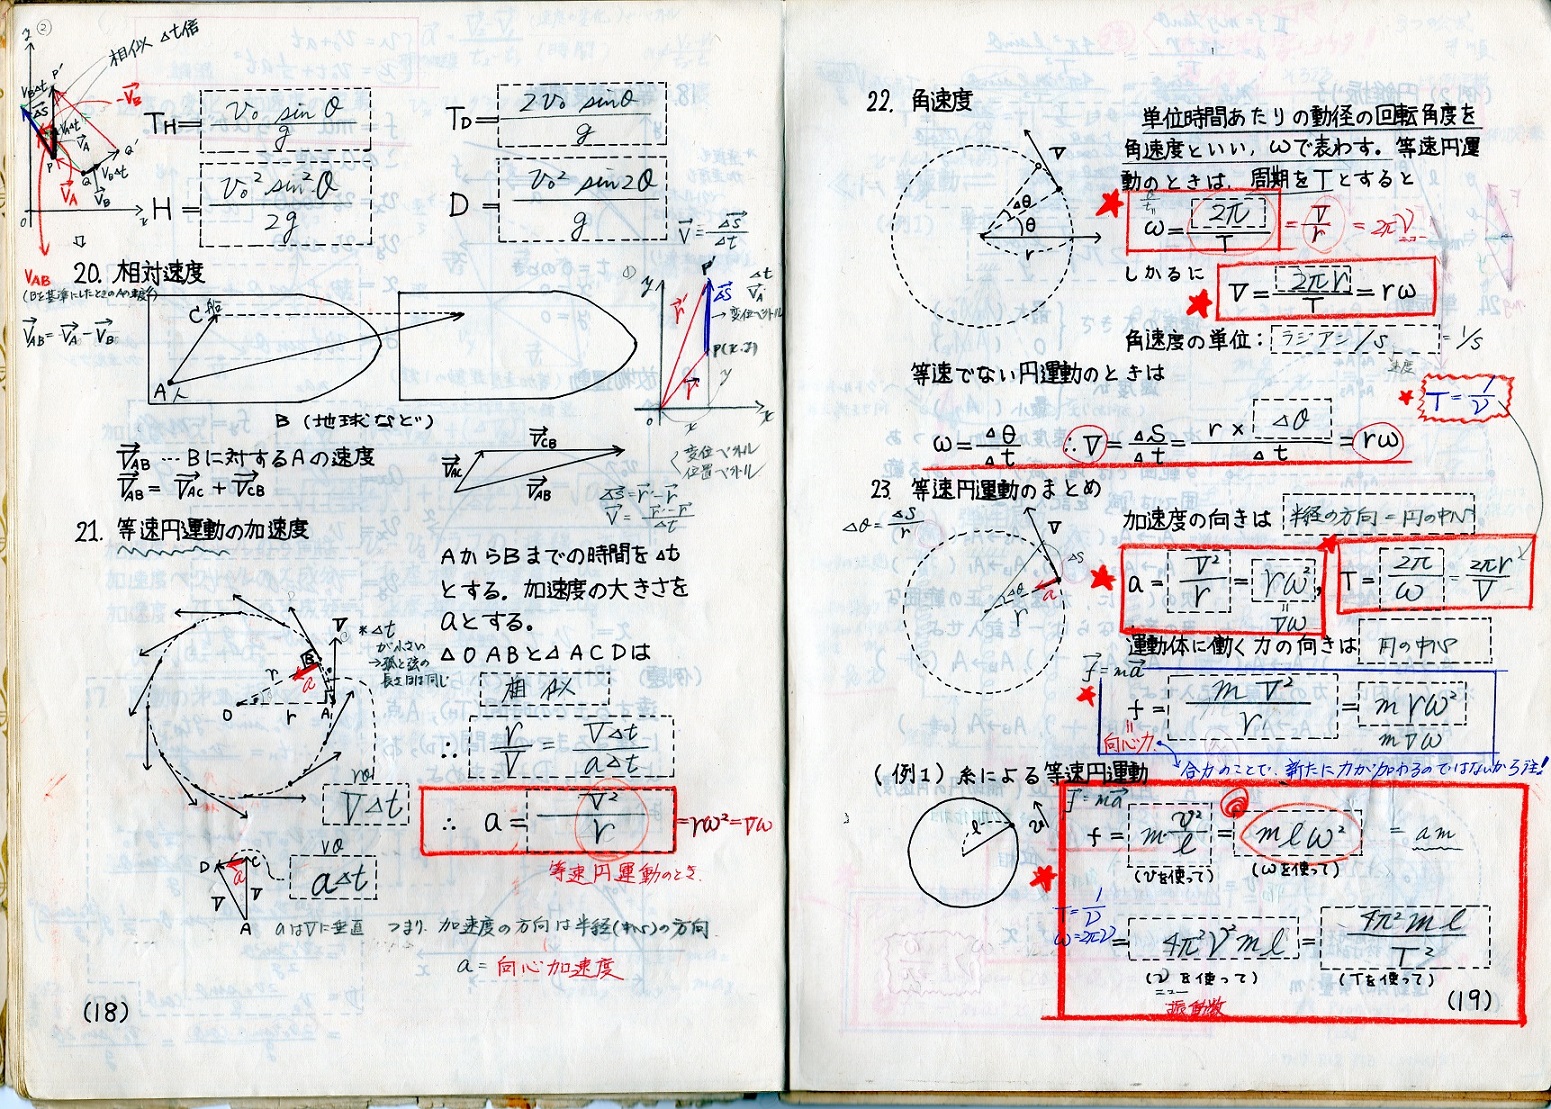 相似 Δt倍
T_H = v₀ sinθ / g
T_D = 2v₀ sinθ / g
H = v₀² sin²θ / 2g
D = v₀² sin2θ / g
V = Δs / Δt
20. 相対速度
V_AB
V_AB = V_A - V_B
C 船
A 人
B (地球など)
変位ベクトル
P(x.y)
変位ベクトル
位置ベクトル
V_AB … Bに対するAの速度
V_AB = V_AC + V_CB
V_AC
V_CB
V_AB
Δs = r' - r
V = r' - r / Δt
21. 等速円運動の加速度
AからBまでの時間をΔt
とする。加速度の大きさを
aとする。
△OABと△ACDは
相似
*Δt
が小さい
→弧と弦の
長さほぼ同じ
∴ r / V = VΔt / aΔt
rθ
VΔt
∴ a = V² / r = rω² = Vω
等速円運動のとき.
Vθ
aΔt
aはVに垂直 つまり 加速度の方向は半径(中心)の方向
a = 向心加速度
(18)
22. 角速度
単位時間あたりの動径の回転角度を
角速度といい, ωで表わす。等速円運
動のときは, 周期をTとすると
ω = 2π / T = V / r = 2πν
しかるに
V = 2πr / T = rω
角速度の単位: ラジアン/s = 1/s
等速でない円運動のときは
T = 1 / ν
ω = Δθ / Δt ∴ V = Δs / Δt = r × Δθ / Δt = rω
23. 等速円運動のまとめ
Δθ = Δs / r
加速度の向きは 半径の方向=円の中心
a = V² / r = rω²,
Vω
T = 2π / ω = 2πr / V
運動体に働く力の向きは 円の中心
f = ma
f = mV² / r = mrω²
mVω
向心力
合力のことで, 新たに力が加わるのではないから注!
(例1) 糸による等速円運動
f = ma
f = m v² / l = mlω² = am
(vを使って) (ωを使って)
T = 1 / ν
ω = 2πν
= 4π²ν²ml = 4π²ml / T²
(νを使って) (Tを使って)
振動数
(19)